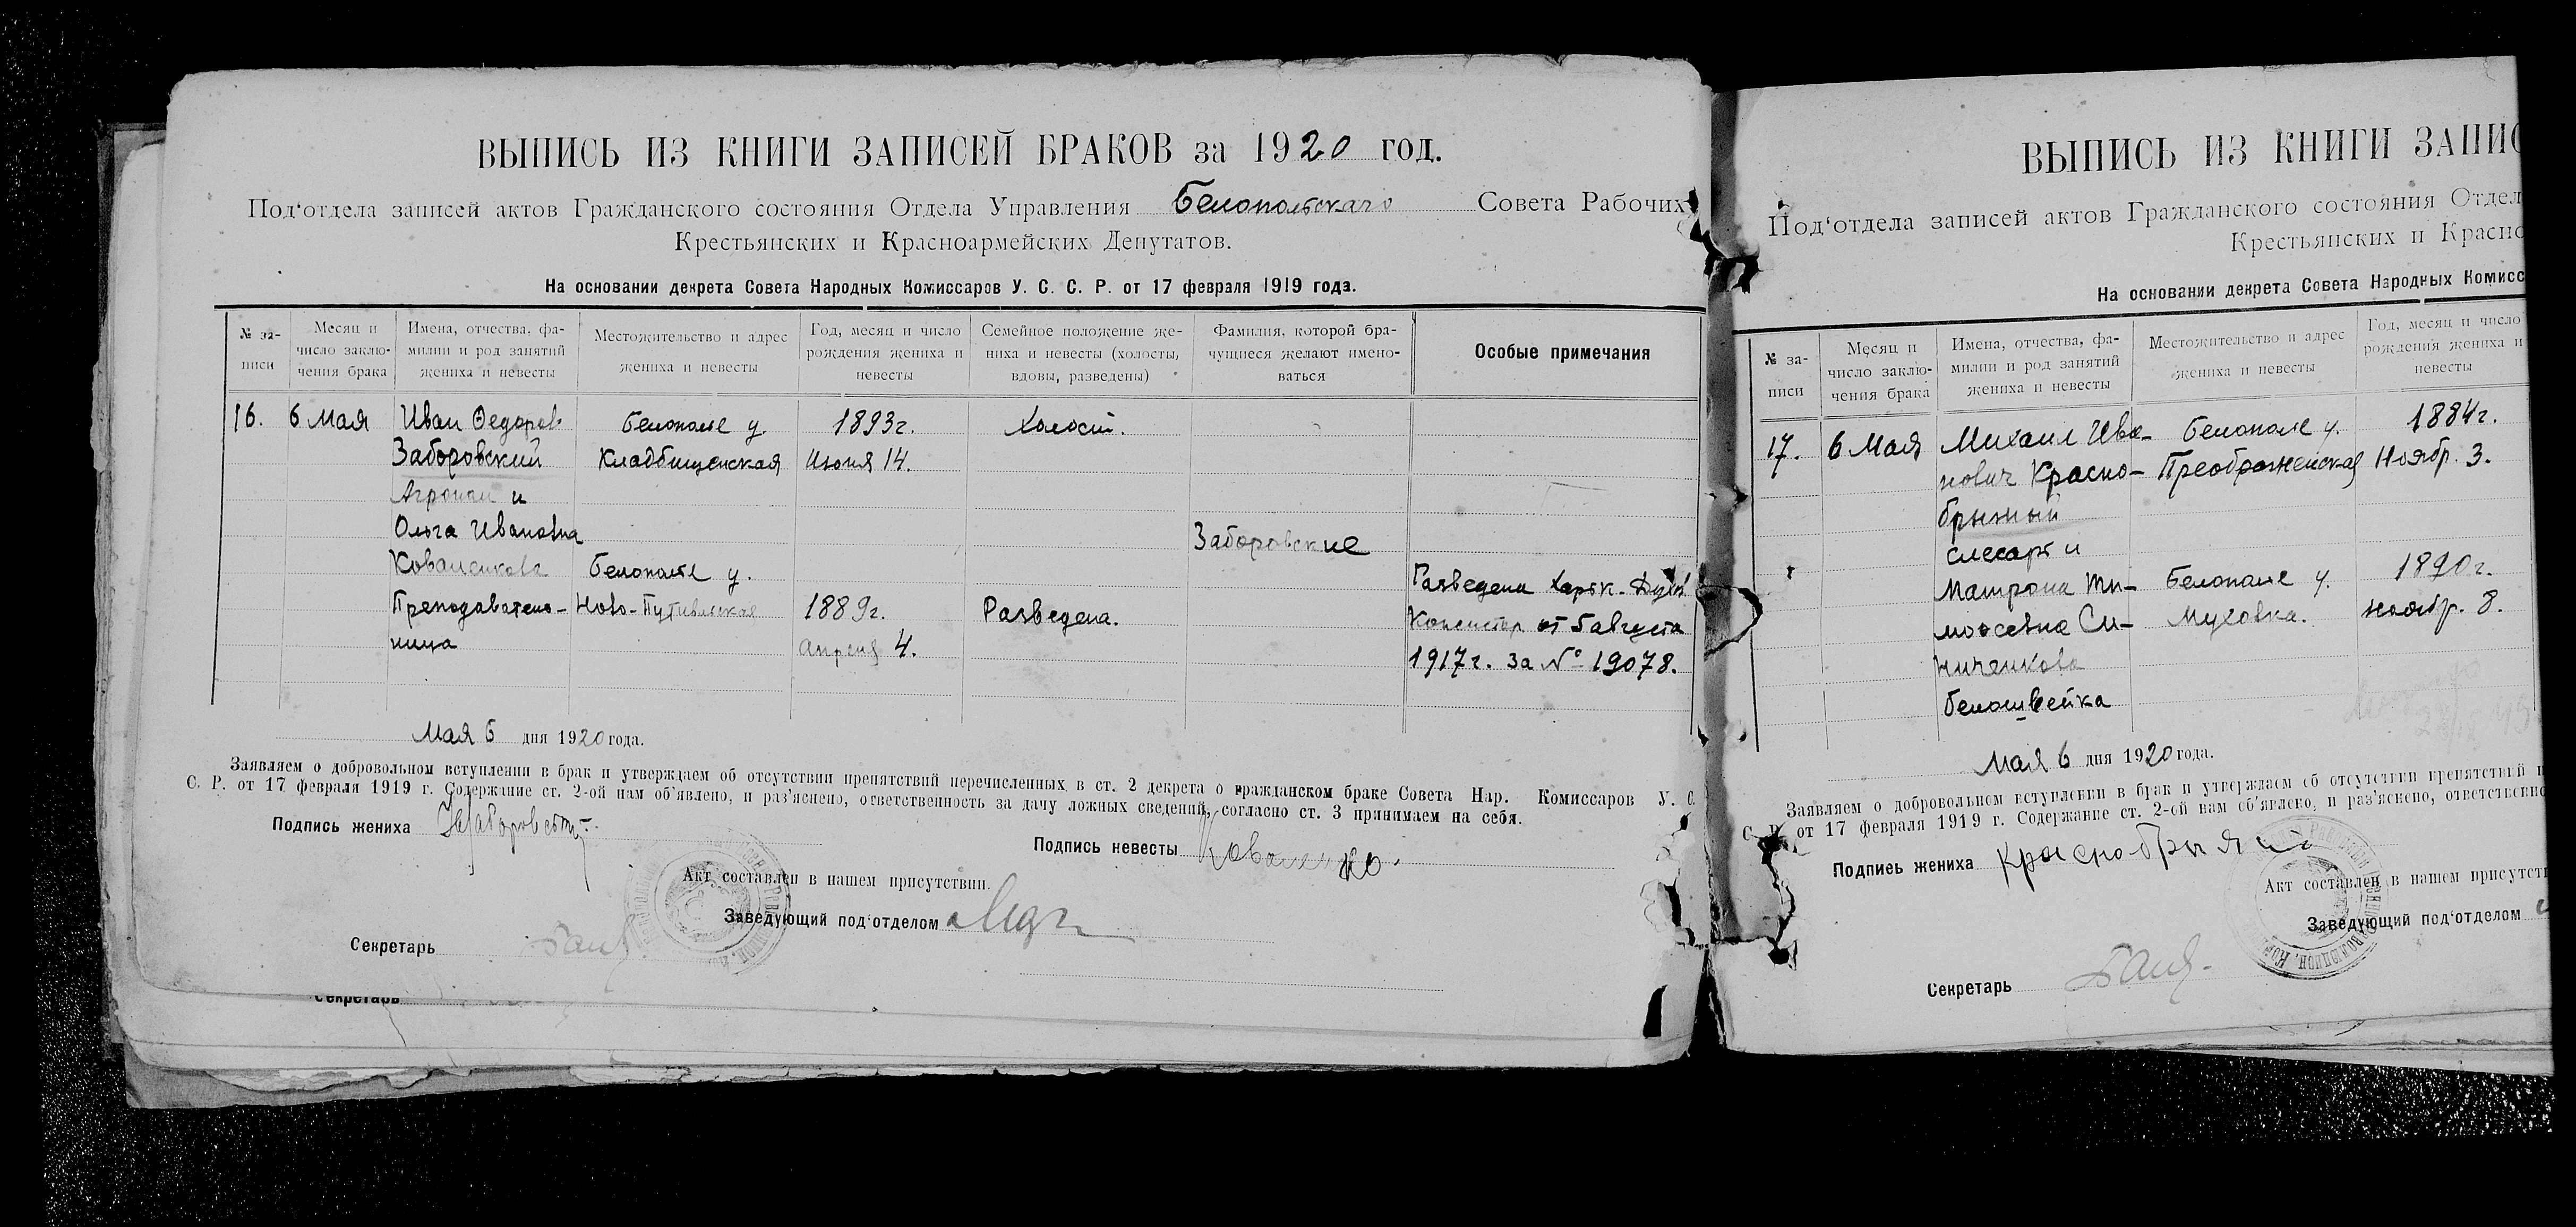 ВЫПИСЬ ИЗ КНИГИ ЗАПИСЕЙ БРАКОВ за 1920 год.
Под‘отдела записей актов Гражданского состояния Отдела Управления Белопольскаго Совета Рабочих
Крестьянских и Красноармейских Депутатов.
На основании декрета Совета Народных Комиссаров У. С. С. Р. от 17 февраля 1919 года.
№ за-
писи
Месяц и
число заклю-
чения брака
Имена, отчества, фа-
милии и род занятий
жениха и невесты
Местожительство и адрес
жениха и невесты
Год, месяц и число
рождения жениха и
невесты
Семейное положение же-
ниха и невесты (холосты,
вдовы, разведены)
Фамилия, которой бра-
чущиеся желают имено-
ваться
Особые примечания
16.
6 Мая
Иван Федоров
Заборовский
Агроном и
Ольга Ивановна
Коваленкова
Преподаватель-
ница
Белополье у.
Кладбищенская
Белополье у.
Ново-Путивльская
1893г.
Июня 14.
1889г.
Апреля 4.
Холост.
Разведена.
Заборовские
Разведена Харьк. Дух.
Консистор от 5 августа
1917г. за № 19078.
Мая 6 дня 1920 года.
Заявляем о добровольном вступлении в брак и утверждаем об отсутствии препятствий перечисленных в ст. 2 декрета о гражданском браке Совета Нар. Комиссаров У. С.
С. Р. от 17 февраля 1919 г. Содержание ст. 2-ой нам об’явлено, и раз’яснено, ответственность за дачу ложных сведений, согласно ст. 3 принимаем на себя.
Подпись жениха Заборовский
Подпись невесты Коваленко
Акт составлен в нашем присутствии.
Заведующий под‘отделом
Секретарь
Секретарь
ВЫПИСЬ ИЗ КНИГИ ЗАПИС
Под‘отдела записей актов Гражданского состояния Отдел
Крестьянских и Красно
На основании декрета Совета Народных Комисс
№ за-
писи
Месяц и
число заклю-
чения брака
Имена, отчества, фа-
милии и род занятий
жениха и невесты
Местожительство и адрес
жениха и невесты
Год, месяц и число
рождения жениха и
невесты
17.
6 Мая
Михаил Ива-
нович Красно-
брыжый
слесарь и
Матрона Ти-
моѳеевна Си-
ниченкова
белошвейка
Белополье у.
Преображенская
Белополье у.
Муховка.
1884г.
Ноябр. 3.
1890г.
ноябр. 8.
Мая 6 дня 1920 года.
Заявляем о добровольном вступлении в брак и утверждаем об отсутствии препятствий п
С. Р. от 17 февраля 1919 г. Содержание ст. 2-ой нам об’явлено, и раз’яснено, ответственно
Подпись жениха
Акт составлен в нашем присутст
Заведующий под‘отделом
Секретарь